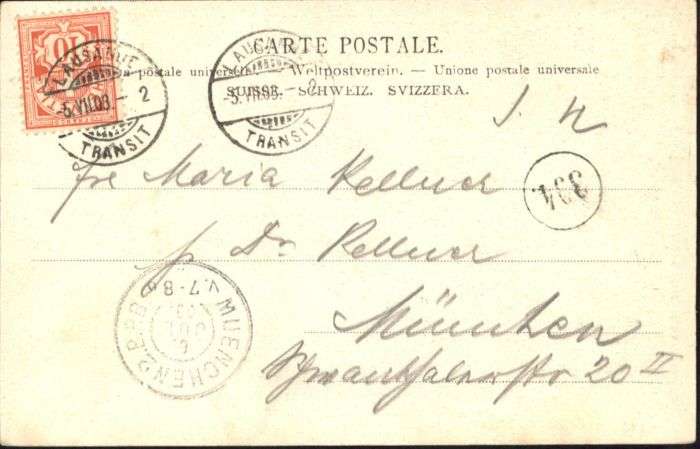 CARTE POSTALE.
postale universelle. — Weltpostverein. — Unione postale universale
SUISSE. SCHWEIZ. SVIZZERA.
10
LAUSANNE
-5.VII.03.- 2
TRANSIT
LAUSANNE
-5.VII.03.- 2
TRANSIT
Maria Kellner
334.
p Dr. Kellner
München
Schwanthalerstr 20 II
MUENCHEN 2.B.P.
V. 7-8
JUL